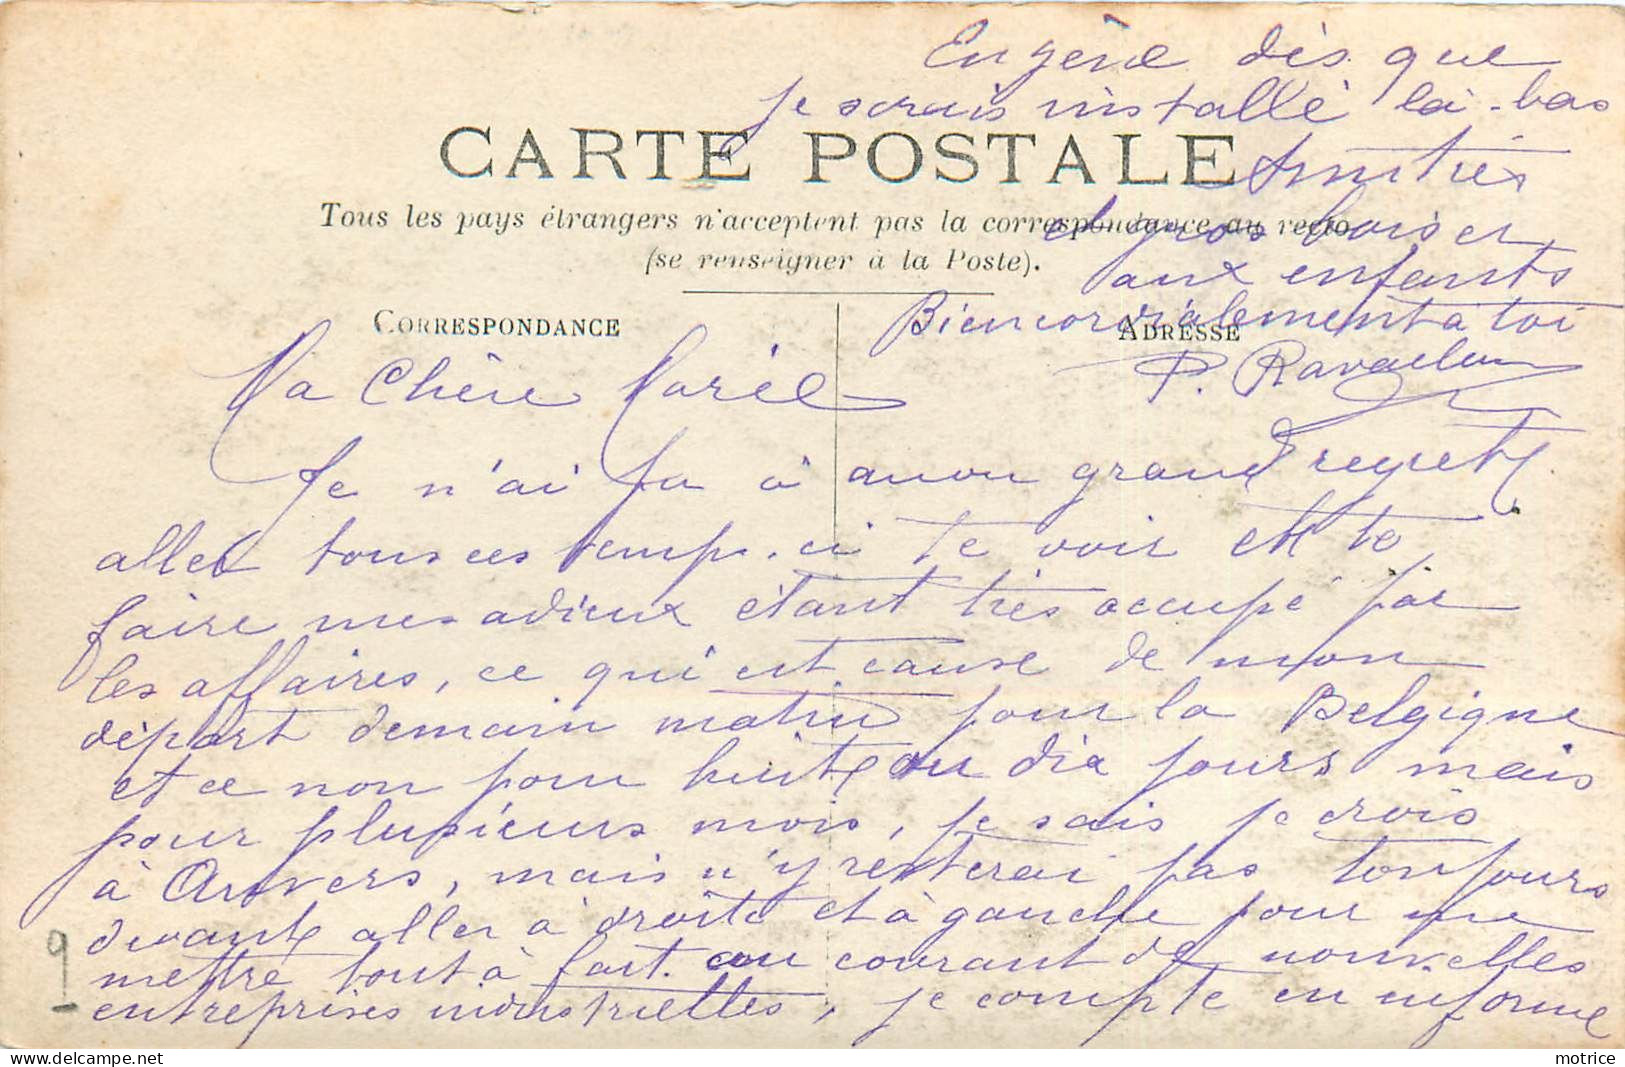 CARTE POSTALE
Tous les pays étrangers n'acceptent pas la correspondance au recto
(se renseigner à la Poste).
CORRESPONDANCE
ADRESSE
Ma Chère Marie
Je n'ai pu à mon grand regret
aller tous ces temps-ci te voir et te
faire mes adieux étant très occupé par
les affaires, ce qui est cause de mon
départ demain matin pour la Belgique
et ce non pour huit ou dix jours mais
pour plusieurs mois, je sais je crois
à Anvers, mais n'y resterai pas toujours
devant aller à droite et à gauche pour me
mettre tout à fait au courant de nouvelles
entreprises industrielles, je compte en informe
Eugène dès que
je serais installé là-bas
Amitiés
et gros baiser
aux enfants
Bien cordialement à toi
P.
9
motrice